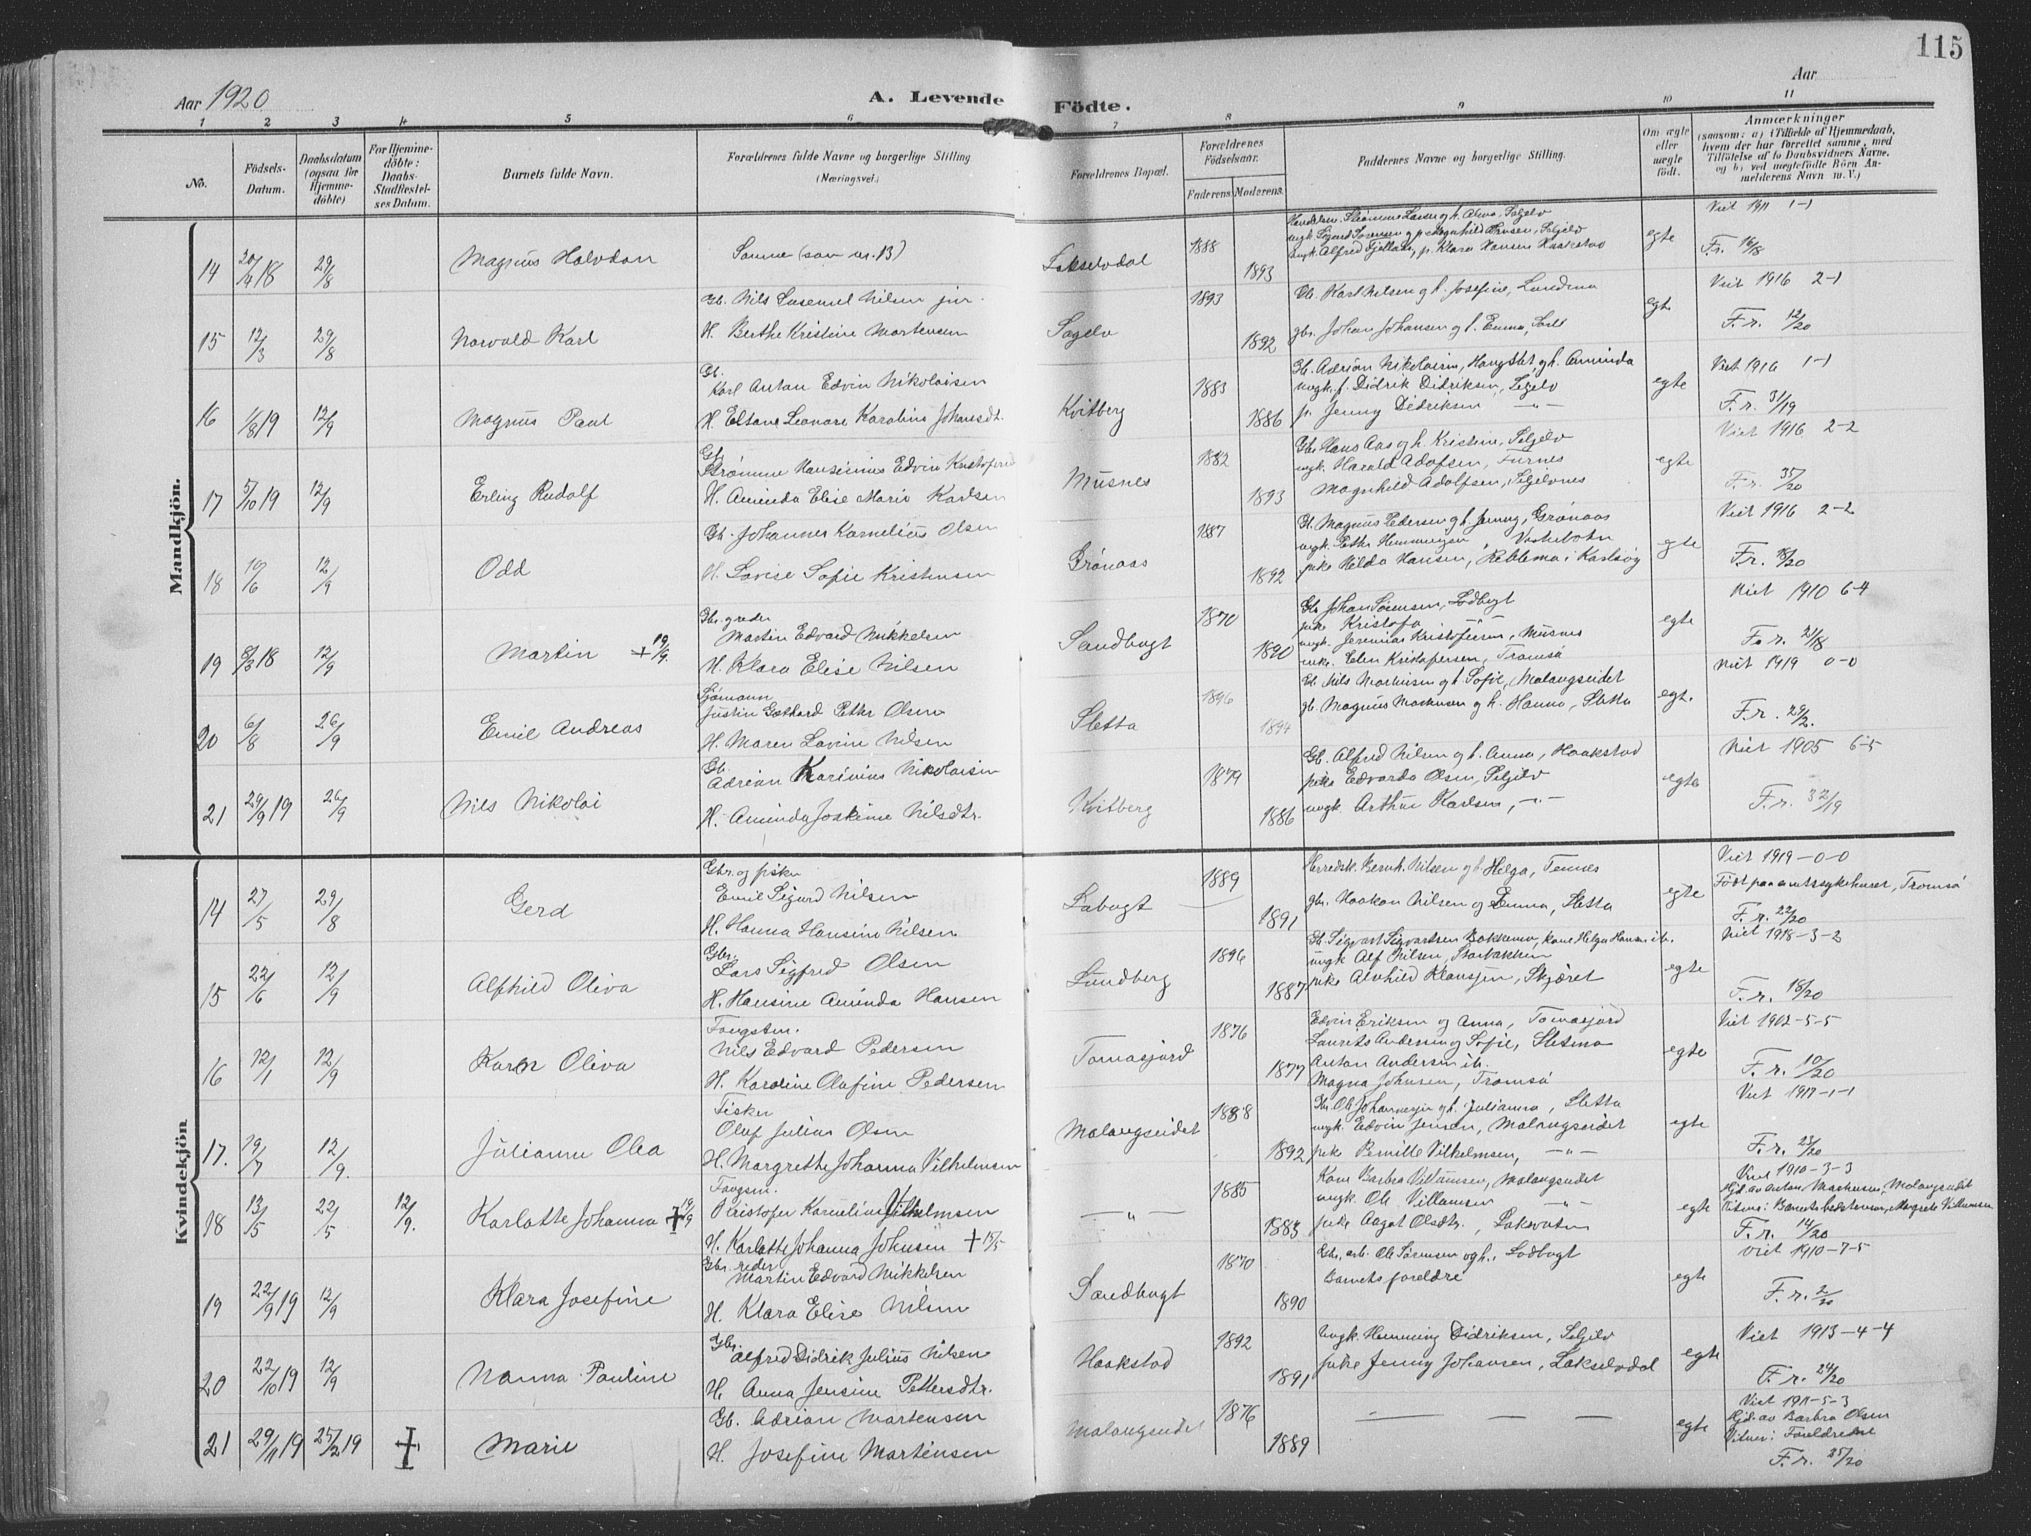 115
Aar 1920
A. Levende Födte.
Aar
1 2 3 4 5 6 7 8 9 10 11
No.
Födsels-Datum.
Daabsdatum (ogsaa for Hjemme-döbte)
For Hjemme-döbte: Daabs-Stadfæstel-ses Datum.
Barnets fulde Navn.
Forældrenes fulde Navne og borgerlige Stilling (Næringsvei.)
Forældrenes Bopæl.
Forældrenes Födselsaar.
Faderens Moderens.
Faddernes Navne og borgerlige Stilling.
Om ægte eller uægte födt.
Anmærkninger
(saasom: a) i Tilfælde af Hjemmedaab, hvem der har forrettet samme, med Tilföielse af to Daabsvidners Navne. og b) ved uægtefödte Börn An-melderens Navn m. V.)
Mandkjön.
14 20/4 18 29/8 Magnus Halvdan Samme (som nr. 13) Lakselvdal 1888 1893 egte Viet 1911 1-1
F.r. 16/18
15 12/3 29/8 Norvald Karl Gb. Nils Nilsen jur.
H. Berthe Kristine Mortensen Sagelv 1893 1892
Gb. Karl Nilsen og h. Josefine, Lundmo
gbr. Johan Johansen og h. Emma, egte Viet 1916 2-1
F.r. 12/20
16 1/8 19 12/9 Magnus Paul Gb.
Karl Anton Edvin Nikolaisen
H. Eltane Leonore Karoline Johansdt. Kvitberg 1883 1886
Gb. Adrian Nikolaisen, og h. Aminda
ungk. f. Didrik Didriksen, Seljelv
p. Jenny Didriksen -"- egte Viet 1916 1-1
F.r. 31/19
17 5/10 19 12/9 Erling Rudolf Gb.
Strømme Hansinius Edvin Kristofersen
H. Aminda Elise Marie Karlsen Musnes 1882 1893
Gbr. Hans Aas og h. Kristine, Seljelv
ungk. Harald Adolfsen, Furnes
Magnhild Adolfsen, Seljelvnes egte Viet 1916 2-2
F.r. 35/20
18 10/6 12/9 Odd Gb. Johannes Kornelius Olsen
H. Lovise Sofie Kristensen Grønaas 1887 1892
Gb. Magnus Pedersen og h. Jenny, Grønaas
ungk. Petter Hemmingsen, Vestebotn
pike Hilda Hansen, Rebbenes i Karlsøy egte Viet 1916 2-2
F.r. 18/20
19 8/3 18 12/9 Martin + 19/9. Gbr.
Martin Edvard Mikkelsen
H. Klara Elise Nilsen Sandbugt 1870 1890
Gb. Johan Sørensen, Lodbugt
pike Kristofa -"-
ungk. Jeremias Kristofersen, Musnes
pike. Elen Kristofersen, Tromsø egte Viet 1910 6-4
F.r. 21/18
20 6/8 26/9 Emil Andreas Sjømann
Justin Gotthard Petter Olsen
H. Maren Lovine Nilsen Sletta 1896 1894
Gb. Nils Martinsen og h. Sofie, Malangseidet
gb. Magnus Markusen og h. Hanna, Sletta egte. Viet 1919 0-0
F.r. 29/2.
21 29/9 19 26/9 Nils Nikolai Gb.
Adrian Karinius Nikolaisen
H. Aminda Joakime Nilsdtr. Kvitberg 1879 1886
Gb. Alfred Nilsen og h. Anna, Haakstad
pike Edvarda Olsen, Seljelv
ungk. Arthur Karlsen, -"- egte Viet 1905 6-5
F.r. 32/19
Kvindekjön
14 27/5 29/8 Gerd Gbr. og fisker
Emil Sigurd Nilsen
H. Hanna Hansine Nilsen Labugt 1889 1891
Herredsk. Bernh. Nilsen og h. Helga, Tennes
gbr. Haakon Nilsen og Emma, Sletta egte Viet 1919-0-0
Født paa amtssykehuset, Tromsø
F.r. 22/20
15 22/6 12/9 Alfhild Oliva Gbr.
Lars Sigfred Olsen
H. Hansine Aminda Hansen Lundberg 1896 1887
Gb. Sigvart Sigvartsen Bakkemo, kone Helga Hansen ib.
ungk Alf Nilsen, Storbakken
pike Alvhild Klausen, Skjæret egte Viet 1918-3-2
F.r. 18/20
16 12/1 12/9 Karen Oliva Fangstm.
Nils Edvard Pedersen
H. Karoline Olafine Pedersen Tomasjord 1876 1877
Edvin Eriksen og Anna, Tomasjord
Laurits Andersen og Sofie, Sletmo
Anton Andersen ib.
Magna Johnsen, Tromsø egte Viet 1902-5-5
F.r. 10/20
17. 19/7 12/9. Julianna Olea Fisker
Oluf Julius Olsen
H. Margrethe Johanna Vilhelmsen Malangseidet 1888 1892
Gb. Ole Johannesen og h. Julianna, Sletta
ungk. Edvin Jensen, Malangseidet
pike Vilhelmsen, -"- egte Viet 1917-1-1
F.r. 23/20
18 13/5 22/5 12/9. Karlotte Johanna + 19/9 Fangsm.
Kristofer Kornelius Vilhelmsen
H. Karlotte Johanna Johnsen + 15/5 -"- 1885 1883
Kone Barbra Villumsen, Malangseidet
ungk. Ole Villumsen -"-
pike Aagot Olsdtr., Laksvatn egte Viet 1910-3-3
Hjd. av Anton Markusen, Malangseidet
Vitner: Barnets bedstemor, Margrete Villumsen
F.r. 14/20
19 22/9 19 12/9 Klara Josefine Gbr.
Martin Edvard Mikkelsen
H. Klara Elise Nilsen Sandbugt 1870 1890
Gbr. arb. Ole Sørensen og h., Lodbugt
Barnets foreldre egte viet 1910-7-5
F.r. 2/20
20 22/10 19 12/9 Nanna Pauline Gbr.
Alfred Didrik Julius Nilsen
H. Anna Jensine Pettersdtr. Haakstad 1892 1891
Ungk. Hemming Didriksen, Seljelv
pike Jenny Johansen, Lakselvdal egte Viet 1913-4-4
F.r. 24/20
21 29/11 19 25/2 19 + Marie Gb. Adrian Martensen
H. Josefine Martensen Malangseidet 1876 1889
— — — — egte Viet 1911-5-3
Hjd. av Barbra Olsen
Vitner: Foreldrene
F.r. 25/20